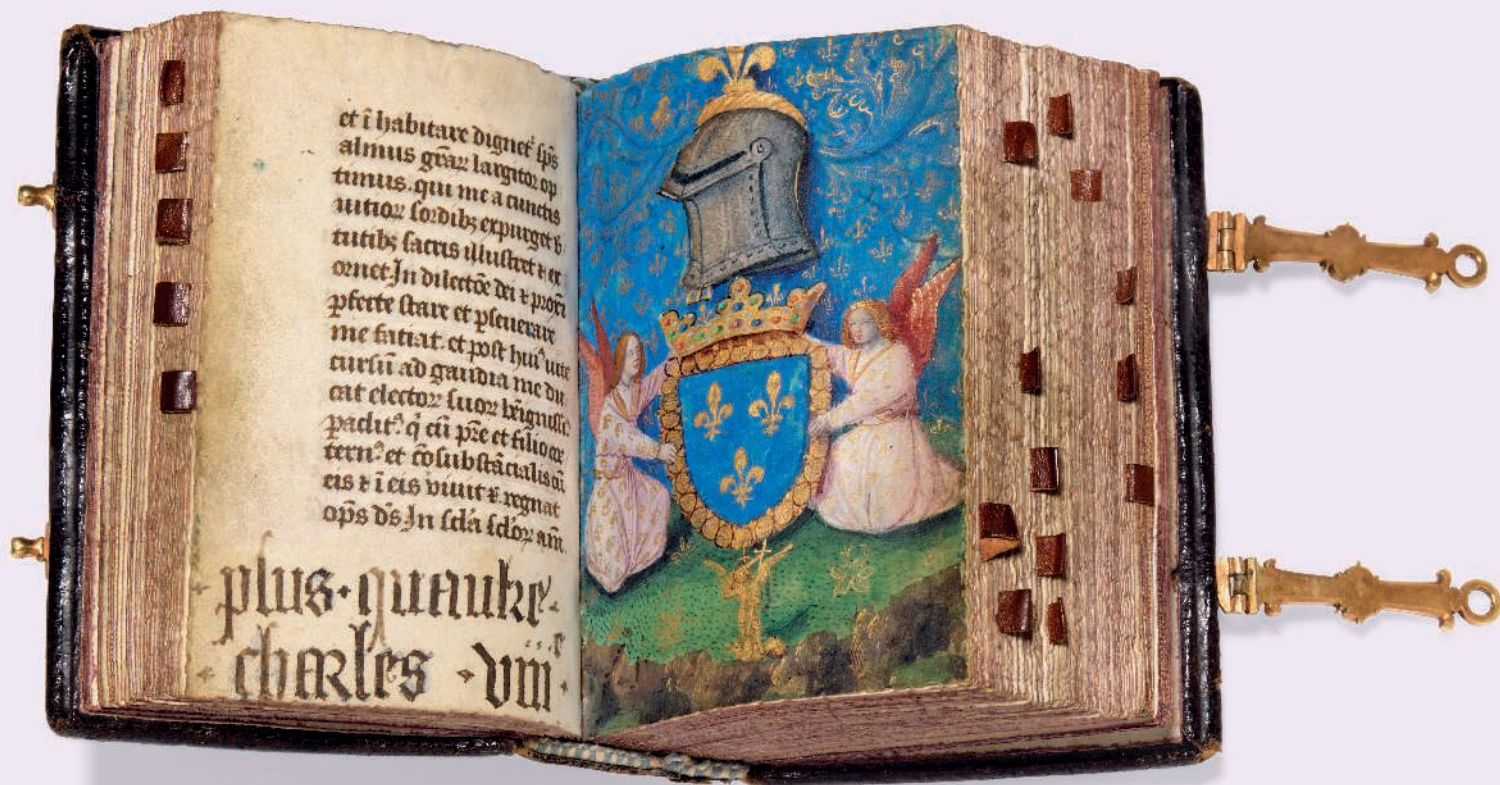 et ī habitare dignet᷑ sp̄s
almus gr̄aꝝ largitor op
timus. qui me a cunctis
uitioꝝ sordibꝫ expurget
tutibꝫ sacris illustret ⁊ ex
ornet In dilectōe dei ⁊ proxi
ꝑfecte stare et ꝑseuerare
me faciat. et post huiꝰ uite
cursū ad gaudia me du
cat electoꝝ suoꝝ
paclitꝰ q̄ cū pr̄e et filio coe
ternꝰ et cōsubstācialis cū
eis ⁊ ī eis viuit ⁊ regnat
op̄s d̄s In sc̄la sc̄loꝝ am̄
plus · quaultre ·
charles · viii ·